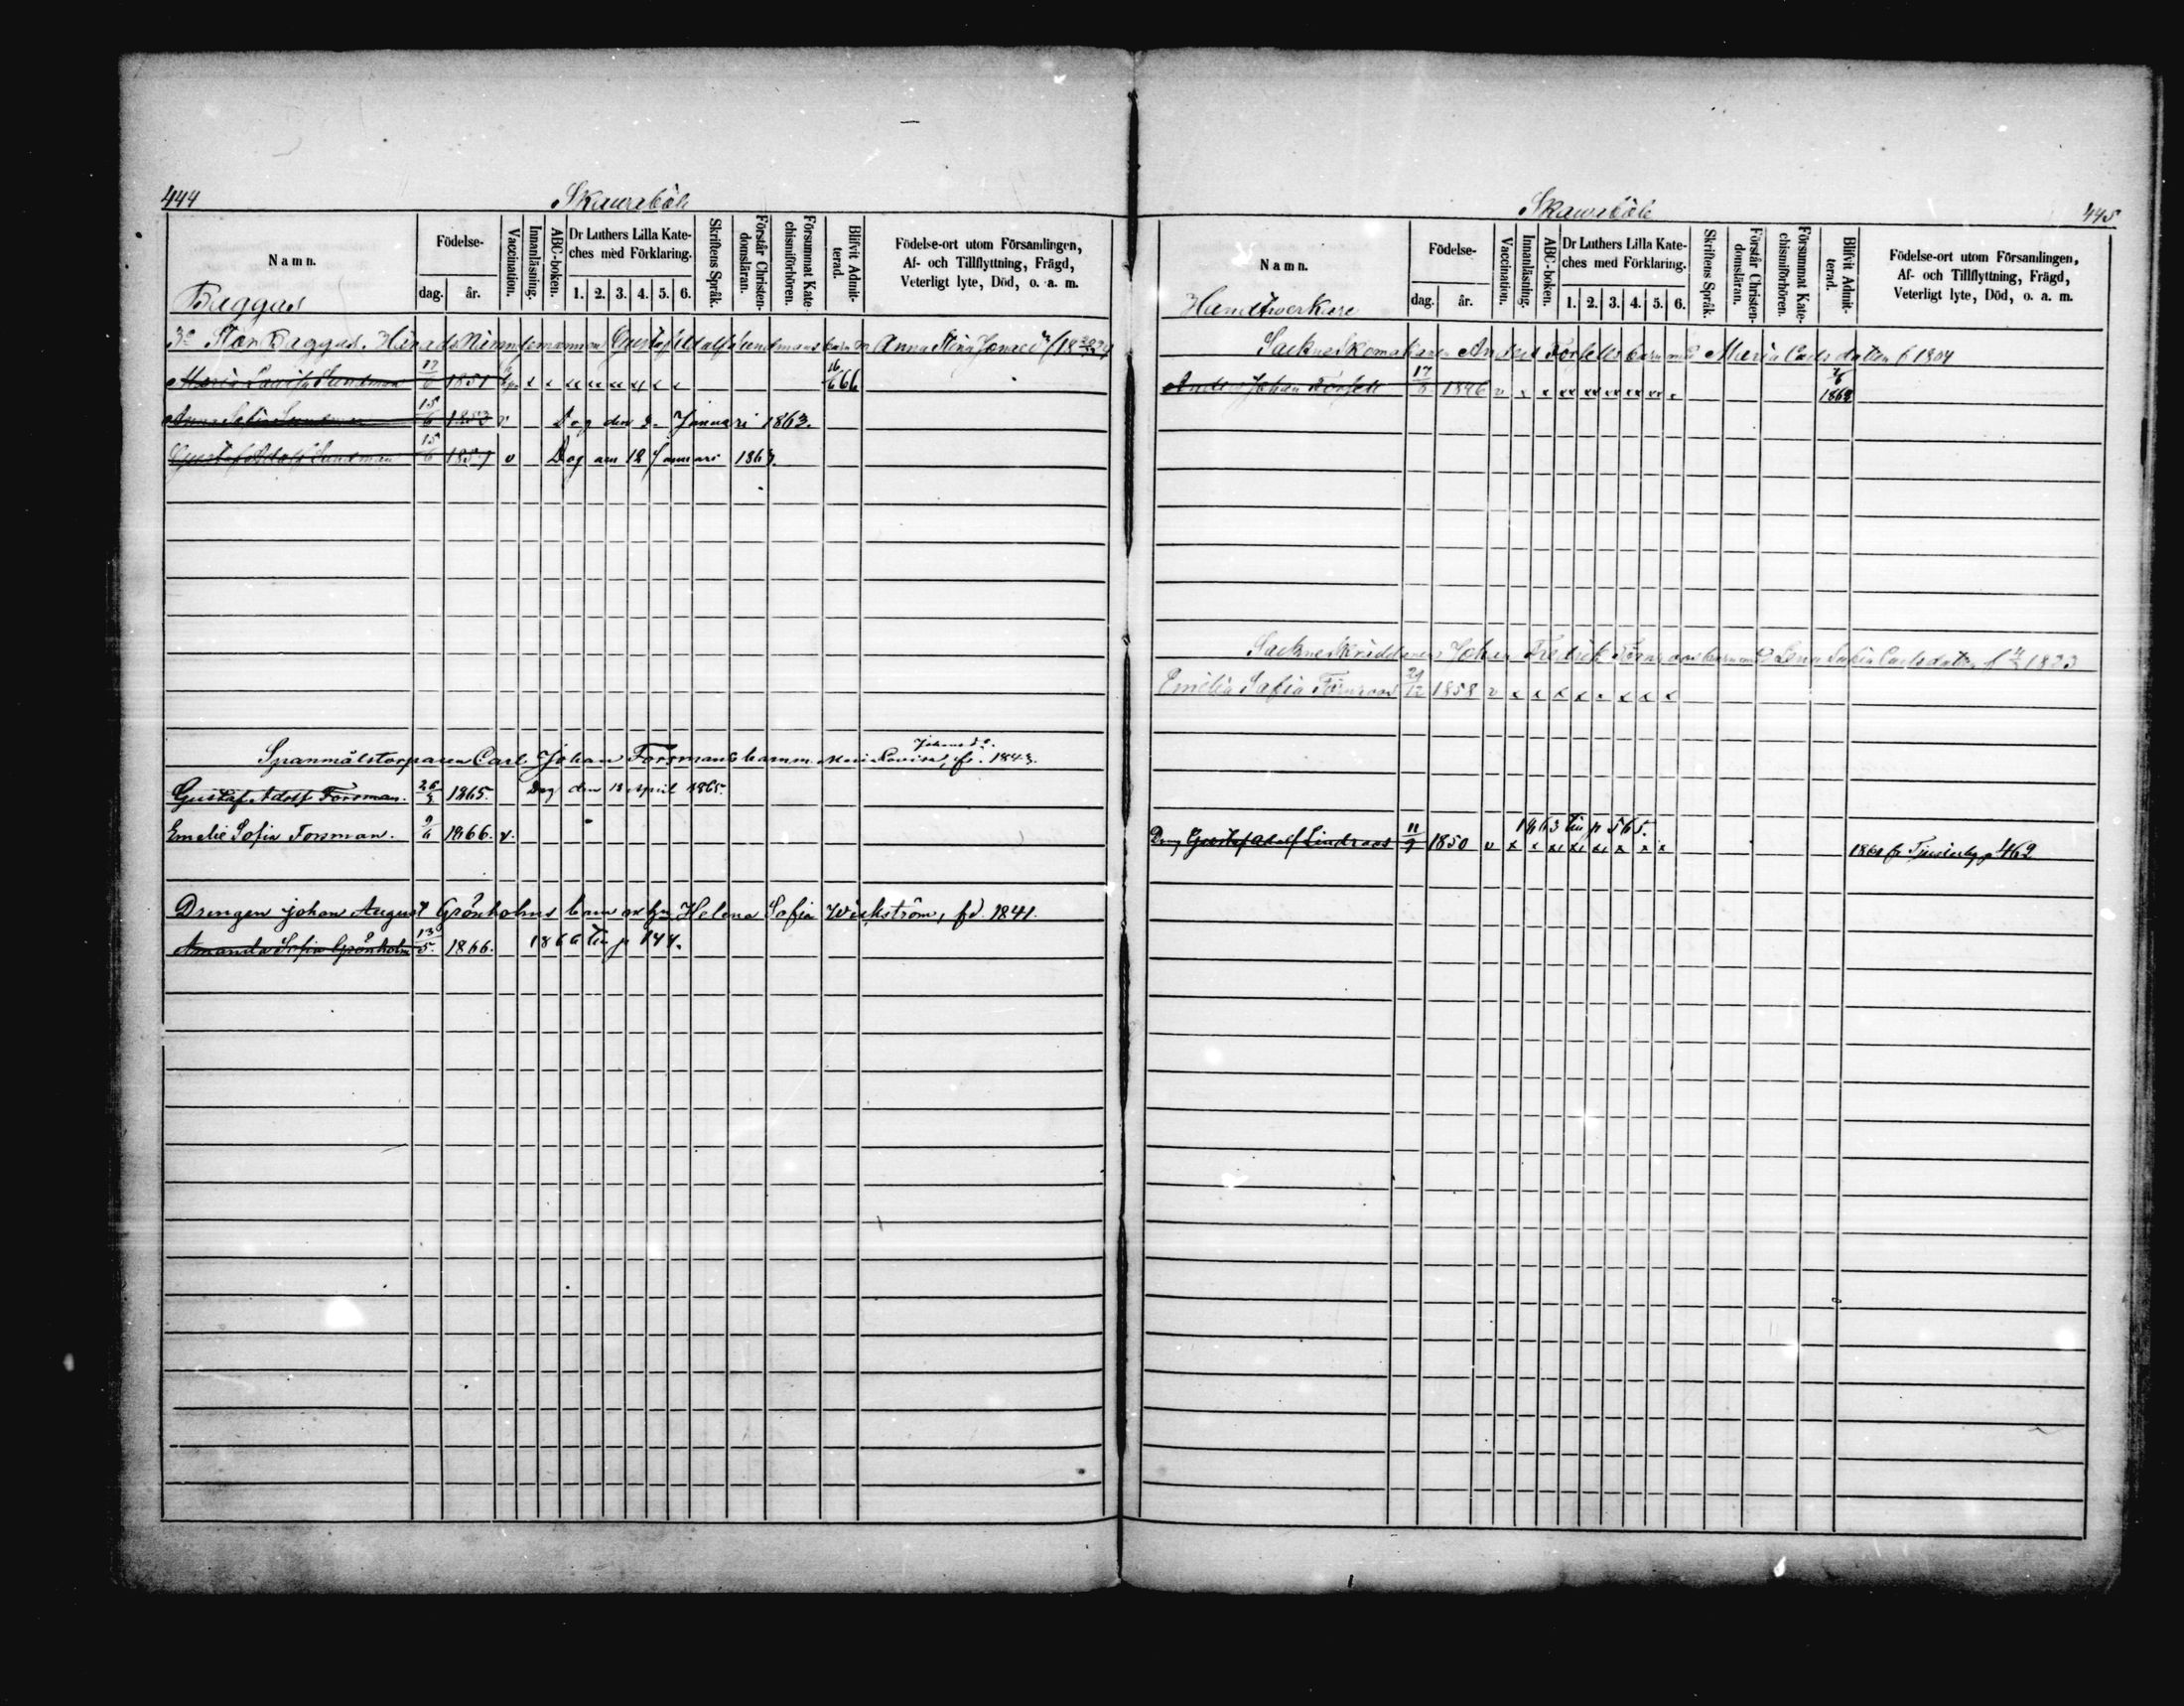 444
Skaurböle
Namn.
Födelse-
dag.
år.
Vaccination.
Innanläsning.
ABC-boken.
Dr Luthers Lilla Kate-
ches med Förklaring.
1. 2. 3. 4. 5. 6.
Skriftens Språk.
Förstår Christen-
domsläran.
Försummat Kate-
chismiförhören.
Blifvit Admit-
terad.
Födelse-ort utom Församlingen,
Af- och Tillflyttning, Frägd,
Veterligt lyte, Död, o. a. m.
Baggas
Baggas. Gustaf Adolf Sundmans barn m Anna Stina
Maria Lovisa Sundman 17/6 1851 x x xx xx xx xx x x 16/6 66
Anna Sofia Sundman 15/6 1853 v Dog den 2 Januari 1863.
Gustaf Adolf Sundman 15/6 1857 v Dog den 12 Januari 1863.
Johansd.
Spanmålstorparen Carl Johan Forsmans barn m. Maria Lovisa, f. 1843.
Gustaf Adolf Forsman. 26/3 1865. Dog den 12 April 1865.
Emelie Sofia Forsman. 9/6 1866. v.
Drengen Johan August Grönholms barn m hu Helena Sofia Wickström, fd. 1841.
Amanda Sofia Grönholm 13/5. 1866. 1866 till p 144.
Skaurböle
445
Namn.
Födelse-
dag.
år.
Vaccination.
Innanläsning.
ABC-boken.
Dr Luthers Lilla Kate-
ches med Förklaring.
1. 2. 3. 4. 5. 6.
Skriftens Språk.
Förstår Christen-
domsläran.
Försummat Kate-
chismiförhören.
Blifvit Admit-
terad.
Födelse-ort utom Församlingen,
Af- och Tillflyttning, Frägd,
Veterligt lyte, Död, o. a. m.
Handtverkare
Sockneskomakaren Anders Forsells barn med Maria Carlsdotter f 1804
Anders Johan Forsell 17/6 1846 v x x xx xx xx xx xx x 1862
Sockneskräddaren Johan Fredrik Törnroos barn med Lena Sofia Carlsdotter f 1823
Emelia Sofia Törnroos 29/12 1858 v x x x x x x x x
1863 till p 565.
Dreng Gustaf Adolf Lindroos 11/9 1850 v x x xx xx xx x x x 1861 fr p 462